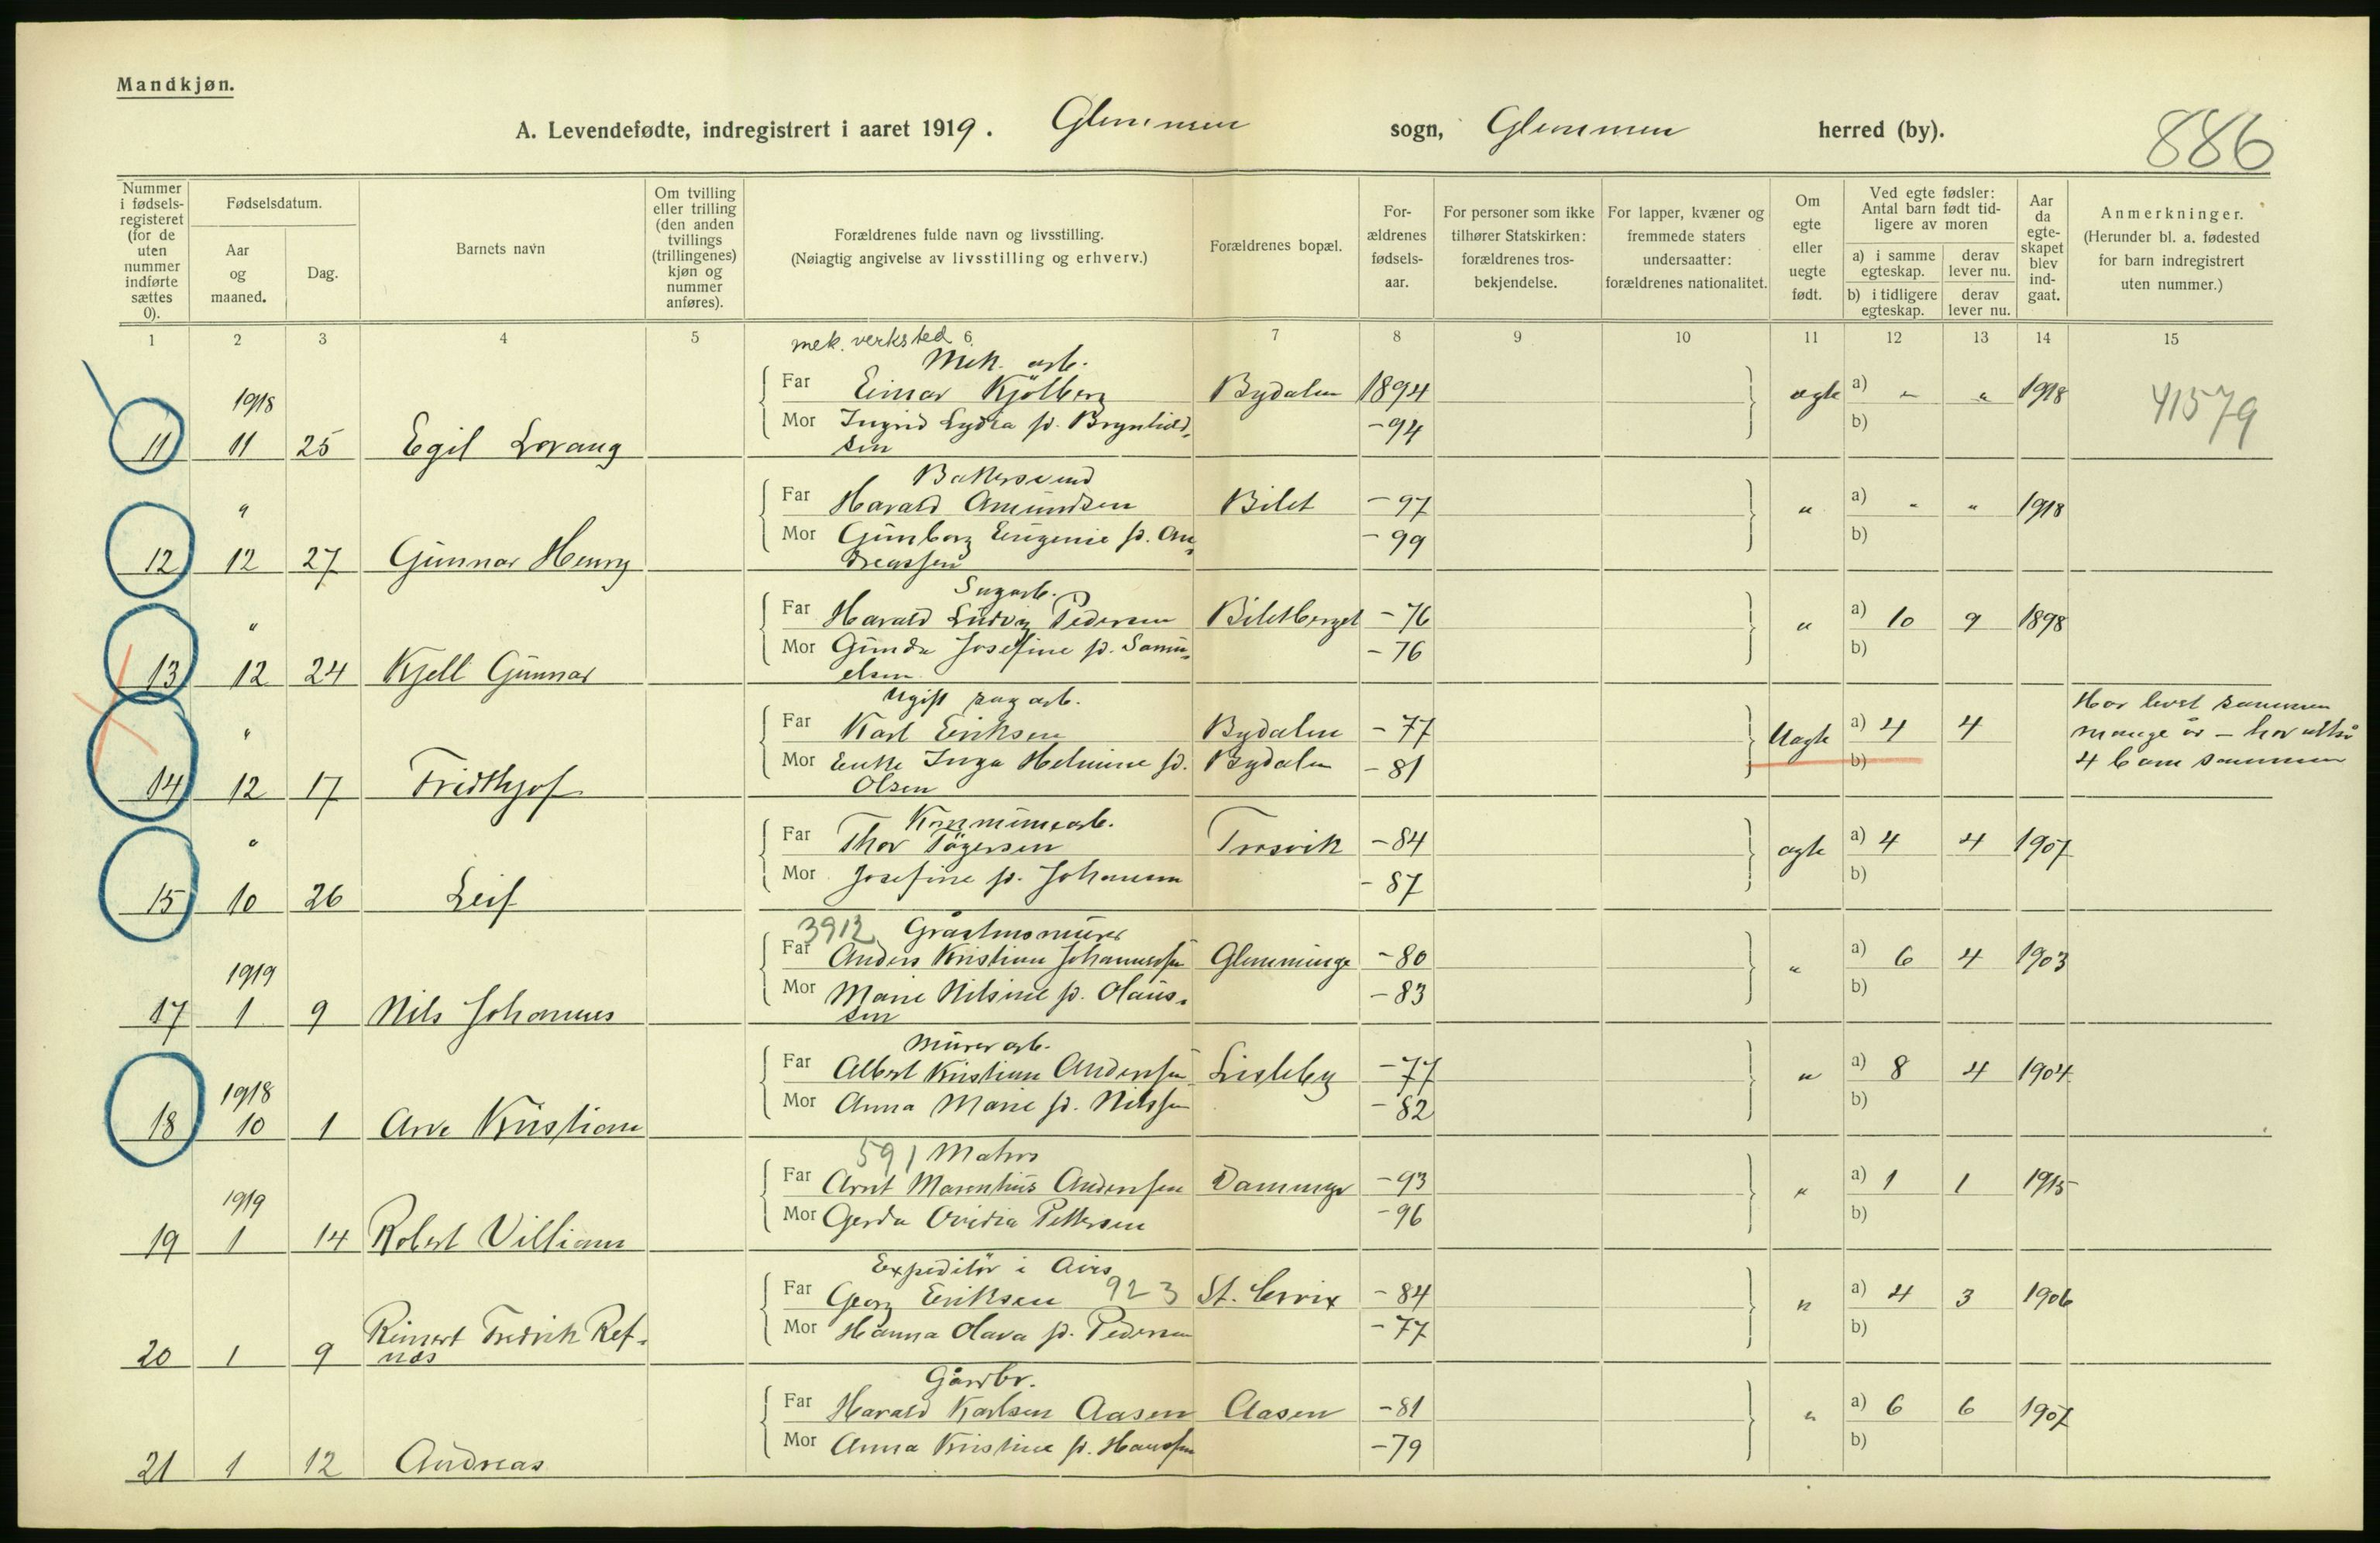 Mandkjøn.
A. Levendefødte, indregistrert i aaret 1919. Glemmen sogn, Glemmen herred (by).
886
Nummer i fødsels-registeret (for de uten nummer indførte sættes 0).
Fødselsdatum.
Aar og maaned.
Dag.
Barnets navn
Om tvilling eller trilling (den anden tvillings (trillingenes) kjøn og nummer anføres).
Forældrenes fulde navn og livsstilling.
(Nøiagtig angivelse av livsstilling og erhverv.)
Forældrenes bopæl.
For-ældrenes fødsels-aar.
For personer som ikke tilhører Statskirken: forældrenes tros-bekjendelse.
For lapper, kvæner og fremmede staters undersaatter: forældrenes nationalitet.
Om egte eller uegte født.
Ved egte fødsler: Antal barn født tid-ligere av moren
a) i samme egteskap.
derav lever nu.
b) i tidligere egteskap.
derav lever nu.
Aar da egte-skapet blev ind-gaat.
Anmerkninger.
(Herunder bl. a. fødested for barn indregistrert uten nummer.)
1 2 3 4 5 6 7 8 9 10 11 12 13 14 15
mek. verksted
Mek. arb.
1918
Far Einar Kjölberg Bydalen 1894 ægte a) " " 1918
41579
Mor Ingrid Lydia f. Brynhild-
sen
-94 b)
11 11 25 Egil Lorang
Bakersvend
" Far Harald Amundsen Bilet -97 " a) " " 1918
Mor Gunborg Eugenie f. An-
dreassen
-99 b)
12 12 27 Gunnar Henry
Sagarb.
" Far Harald Ludvig Pedersen Biletberget -76 " a) 10 9 1898
Mor Gunda Josefine f. Samu-
elsen
-76 b)
13 12 24 Kjell Gunnar
Ugift sag arb.
" Far Karl Eriksen Bydalen -77 Uægte a) 4 4
Har levet sammen
mange år - har altså
4 barn sammen
Mor Enke Inga Helmine f. Bydalen -81 b)
Olsen
14 12 17 Fridthjof
Kommunearb.
" Far Thor Tögersen Trosvik -84 ægte a) 4 4 1907
Mor Josefine f. Johansen -87 b)
15 10 26 Leif
3912 Gråstensmurer
1919
Far Anders Kristian Johannessen Glemminge -80 " a) 6 4 1903
Mor Marie Nilsine f. Olaus-
sen
-83 b)
17 1 9 Nils Johannes
Murer arb.
1918
Far Albert Kristian Andersen Lisleby -77 " a) 8 4 1904
Mor Anna Marie f. Nilssen -82 b)
18 10 1 Arve Kristian
591 Matros
1919
Far Arnt Marentius Andersen Damminge -93 " a) 1 1 1915
Mor Gerda Ovidia Pettersen -96 b)
19 1 14 Robert Villiam
Expeditör i Avis
Far Georg Eriksen 923 St. Croix -84 " a) 4 3 1906
Mor Hanna Olava f. Pedersen -77 b)
20 1 9 Reinert Fredrik Ref-
nes
Gårdbr.
Far Harald Karlsen Aasen Aasen -81 " a) 6 6 1907
Mor Anna Kristine f. Hanssen -79 b)
21 1 12 Andreas